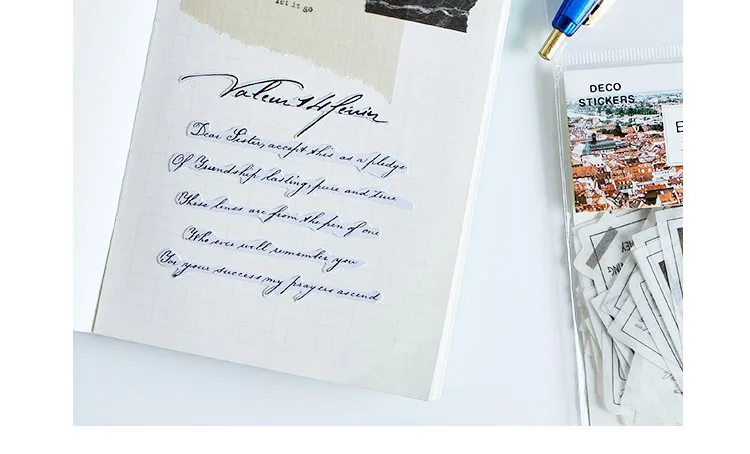 let it go
Valeur 14 février
Dear Sister, accept this as a pledge
Of Friendship lasting, pure and true
These lines are from the pen of one
Who ever will remember you
For your success my prayers ascend
DECO
STICKERS
E